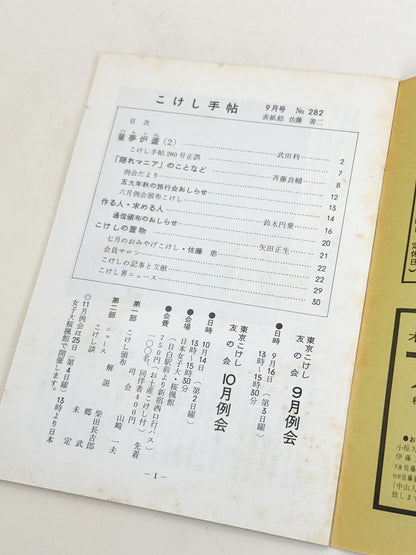 こけし手帖 9月号 No. 282
表紙絵 佐藤 善二
目次
童夢炉邊(2)……武田利一…… 2
こけし手帖280号正誤…… 7
「隠れマニア」のことなど……斉藤良輔…… 8
例会だより…… 12
五九年秋の旅行会おしらせ…… 13
六月例会頒布こけし…… 14
作る人・求める人……鈴木円乗…… 16
通信頒布のおしらせ…… 20
こけしの置物……矢田正生…… 21
七月のおみやげこけし・佐藤 忠…… 22
会員サロン…… 22
こけしの記事と文献…… 29
こけし界ニュース…… 30
東京こけし友の会 9月例会
●日時 9月16日(第3日曜)
13時〜15時30分
東京こけし友の会 10月例会
●日時 10月14日(第2日曜)
13時〜15時30分
●会場 日本女子大・桜楓館
(目白駅前より新宿西口行バス)
●会費 750円(お土産こけし付)
同伴者400円
一〇〇名 先着
第一部 司会 山崎 一夫
こけし頒布
第二部 ニュース 解説 柴田長吉郎
こけし談 郷 武
未定
◎11月例会は25日(第4日曜)13時より日本
女子大桜楓館で開催します。
— 1 —
定
休日
●お
小恒久
伊藤
佐藤
佐
(中山人
致しま